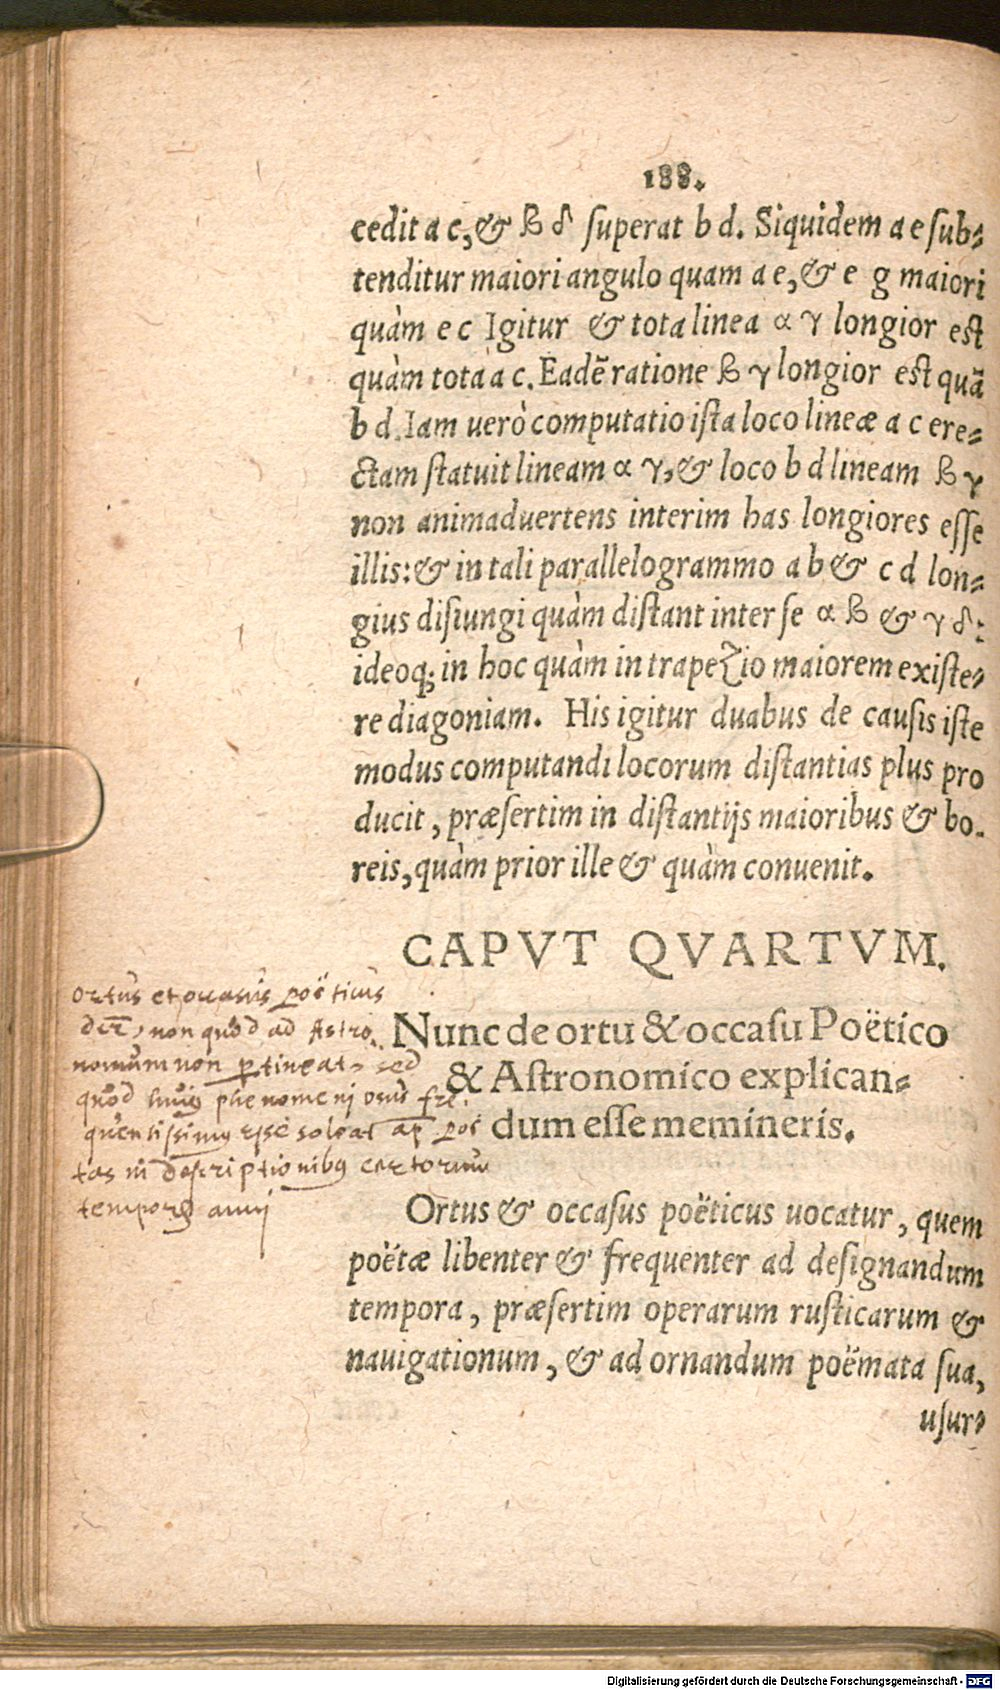 188.
cedit a c, & β δ superat b d. Siquidem a e sub-
tenditur maiori angulo quam a e, & e g maiori
quàm e c Igitur & tota linea α γ longior est
quàm tota a c. Eadē ratione β γ longior est quā
b d. Iam uerò computatio ista loco lineæ a c ere-
ctam statuit lineam α γ, & loco b d lineam β γ
non animaduertens interim has longiores esse
illis: & in tali parallelogrammo a b & c d lon-
gius disiungi quàm distant inter se α β & γ δ:
ideoq; in hoc quàm in trapezio maiorem existe-
re diagoniam. His igitur duabus de causis iste
modus computandi locorum distantias plus pro
ducit, præsertim in distantijs maioribus & bo-
reis, quàm prior ille & quàm conuenit.
CAPVT QVARTVM.
Nunc de ortu & occasu Poëtico
& Astronomico explican-
dum esse memineris.
Ortus et occasus poëticus
non quòd ad Astro
nomum non ptineat, sed
quòd huius phenomeni usus fre
quentissimus esse soleat ap poë
tas in descriptionibus certorum
temporū anni
Ortus & occasus poëticus uocatur, quem
poëtæ libenter & frequenter ad designandum
tempora, præsertim operarum rusticarum &
nauigationum, & ad ornandum poëmata sua,
usur-
Digitalisierung gefördert durch die Deutsche Forschungsgemeinschaft - DFG